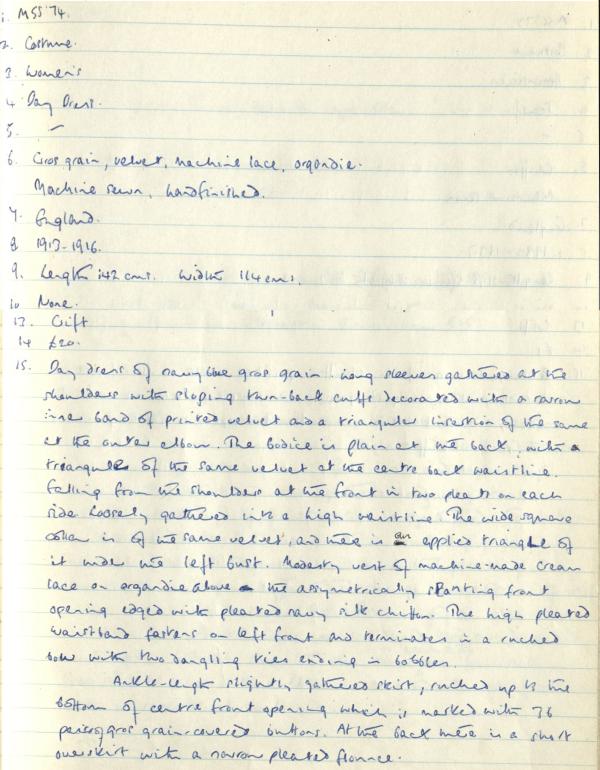 1. MSS '74.
2. Costume.
3. Women's
4. Day Dress.
5. —
6. Gros grain, velvet, machine lace, organdie.
Machine sewn, handfinished.
7. England.
8. 1913-1916.
9. Length 142 cms. Width 114 cms.
10 None.
13. Gift
14 £20.
15. Day dress of navy blue gros grain. Long sleeves gathered at the
shoulders with sloping turn-back cuffs decorated with a narrow
inner band of printed velvet and a triangular insertion of the same
at the outer elbow. The bodice is plain at the back, with a
triangle of the same velvet at the centre back waistline.
Falling from the shoulders at the front in two pleats on each
side loosely gathered into a high waistline. The wide square
collar is of the same velvet, and there is an applied triangle of
it under the left bust. Modesty vest of machine-made cream
lace on organdie above the assymetrically slanting front
opening edged with pleated navy silk chiffon. The high pleated
waistband fastens on left front and terminates in a ruched
bow with two dangling ties ending in bobbles.
Ankle-length slightly gathered skirt, ruched up to the
bottom of centre front opening which is marked with 36
gros grain-covered buttons. At the back there is a short
overskirt with a narrow pleated flounce.